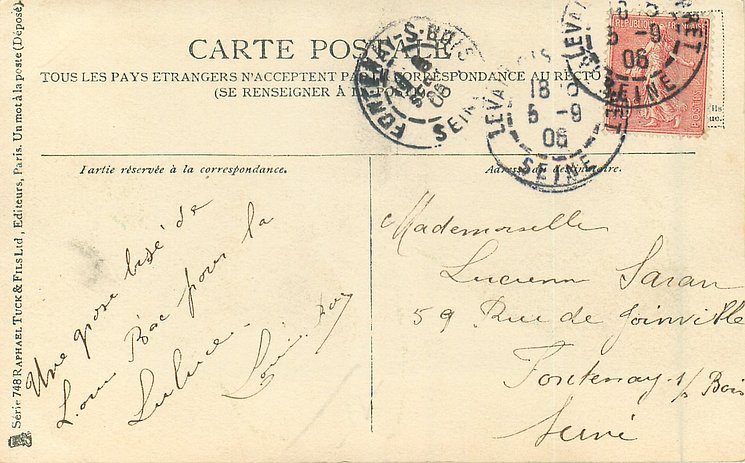 CARTE POSTALE
TOUS LES PAYS ETRANGERS N'ACCEPTENT PAS LA CORRESPONDANCE AU RECTO
(SE RENSEIGNER À LA POSTE)
FONTENAY-S-BOIS
SEINE
LEVALLOIS
18
5 -9
06
SEINE
LEVALLOIS PERRET
18
5 -9
06
SEINE
REPUBLIQUE FRANÇAISE
POSTES
Partie réservée à la correspondance.
Adresse du destinataire.
Une grosse bisé de
pour la
Luluce.
Mademoiselle
Lucienn Saran
59 Rue de Joinville
Fontenay s/ Bois
Seine
Série 748 RAPHAEL TUCK & FILS Ltd, Editeurs, Paris. Un mot à la poste (Déposé)